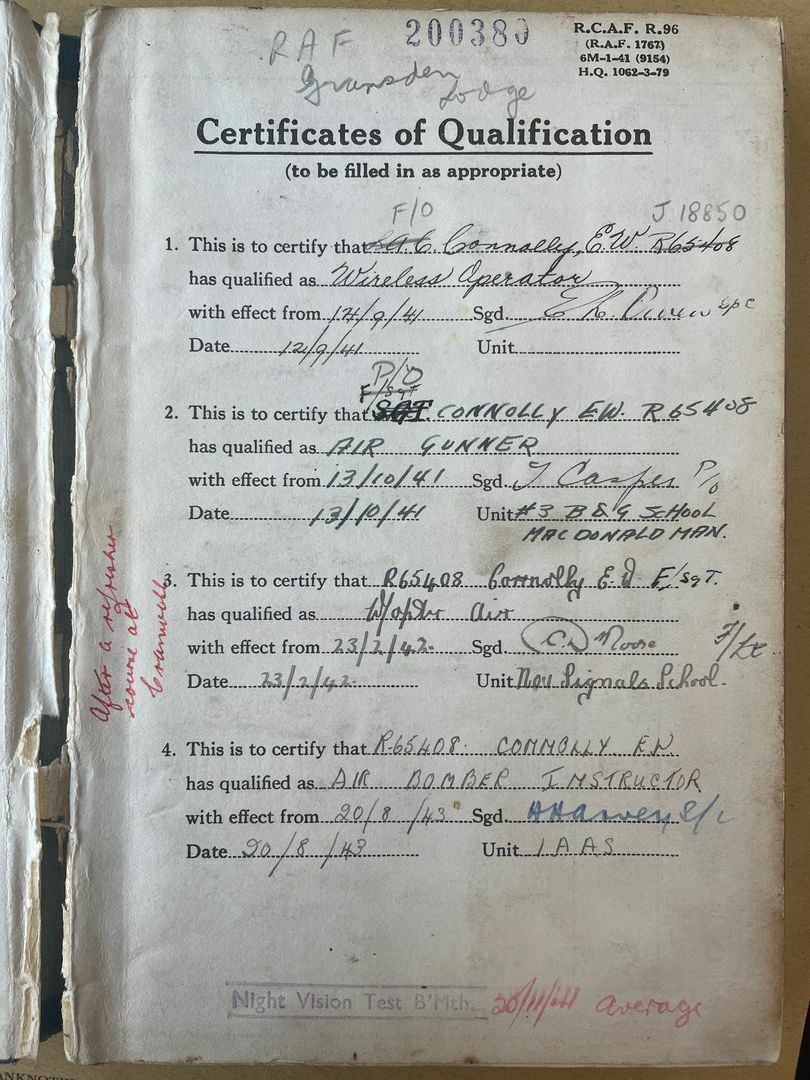 RAF
Gransden
Lodge
200380
R.C.A.F. R.96
(R.A.F. 1767)
6M-1-41 (9154)
H.Q. 1062-3-79
Certificates of Qualification
(to be filled in as appropriate)
F/O
J.18850
1. This is to certify that Connolly, E.W. R65408
has qualified as Wireless Operator
with effect from 12/9/41 Sgd.
Date 12/9/41 Unit
P/O
F/SGT
2. This is to certify that SGT. CONNOLLY EW. R65408
has qualified as AIR GUNNER
with effect from 13/10/41 Sgd. J Casper P/O
Date 13/10/41 Unit #3 B & G SCHOOL
MACDONALD MAN.
After a refresher
course at
Cranwell
3. This is to certify that R65408 Connolly E. W F/SGT.
has qualified as W/optr air
with effect from 23/2/42 Sgd. Moore F/Lt
Date 23/2/42 Unit Signals School.
4. This is to certify that R-65408. CONNOLLY EW
has qualified as AIR BOMBER INSTRUCTOR
with effect from 20/8/43 Sgd. HHarvey S/L
Date 20/8/43 Unit 1 A A S
Night Vision Test B'Mth. Average